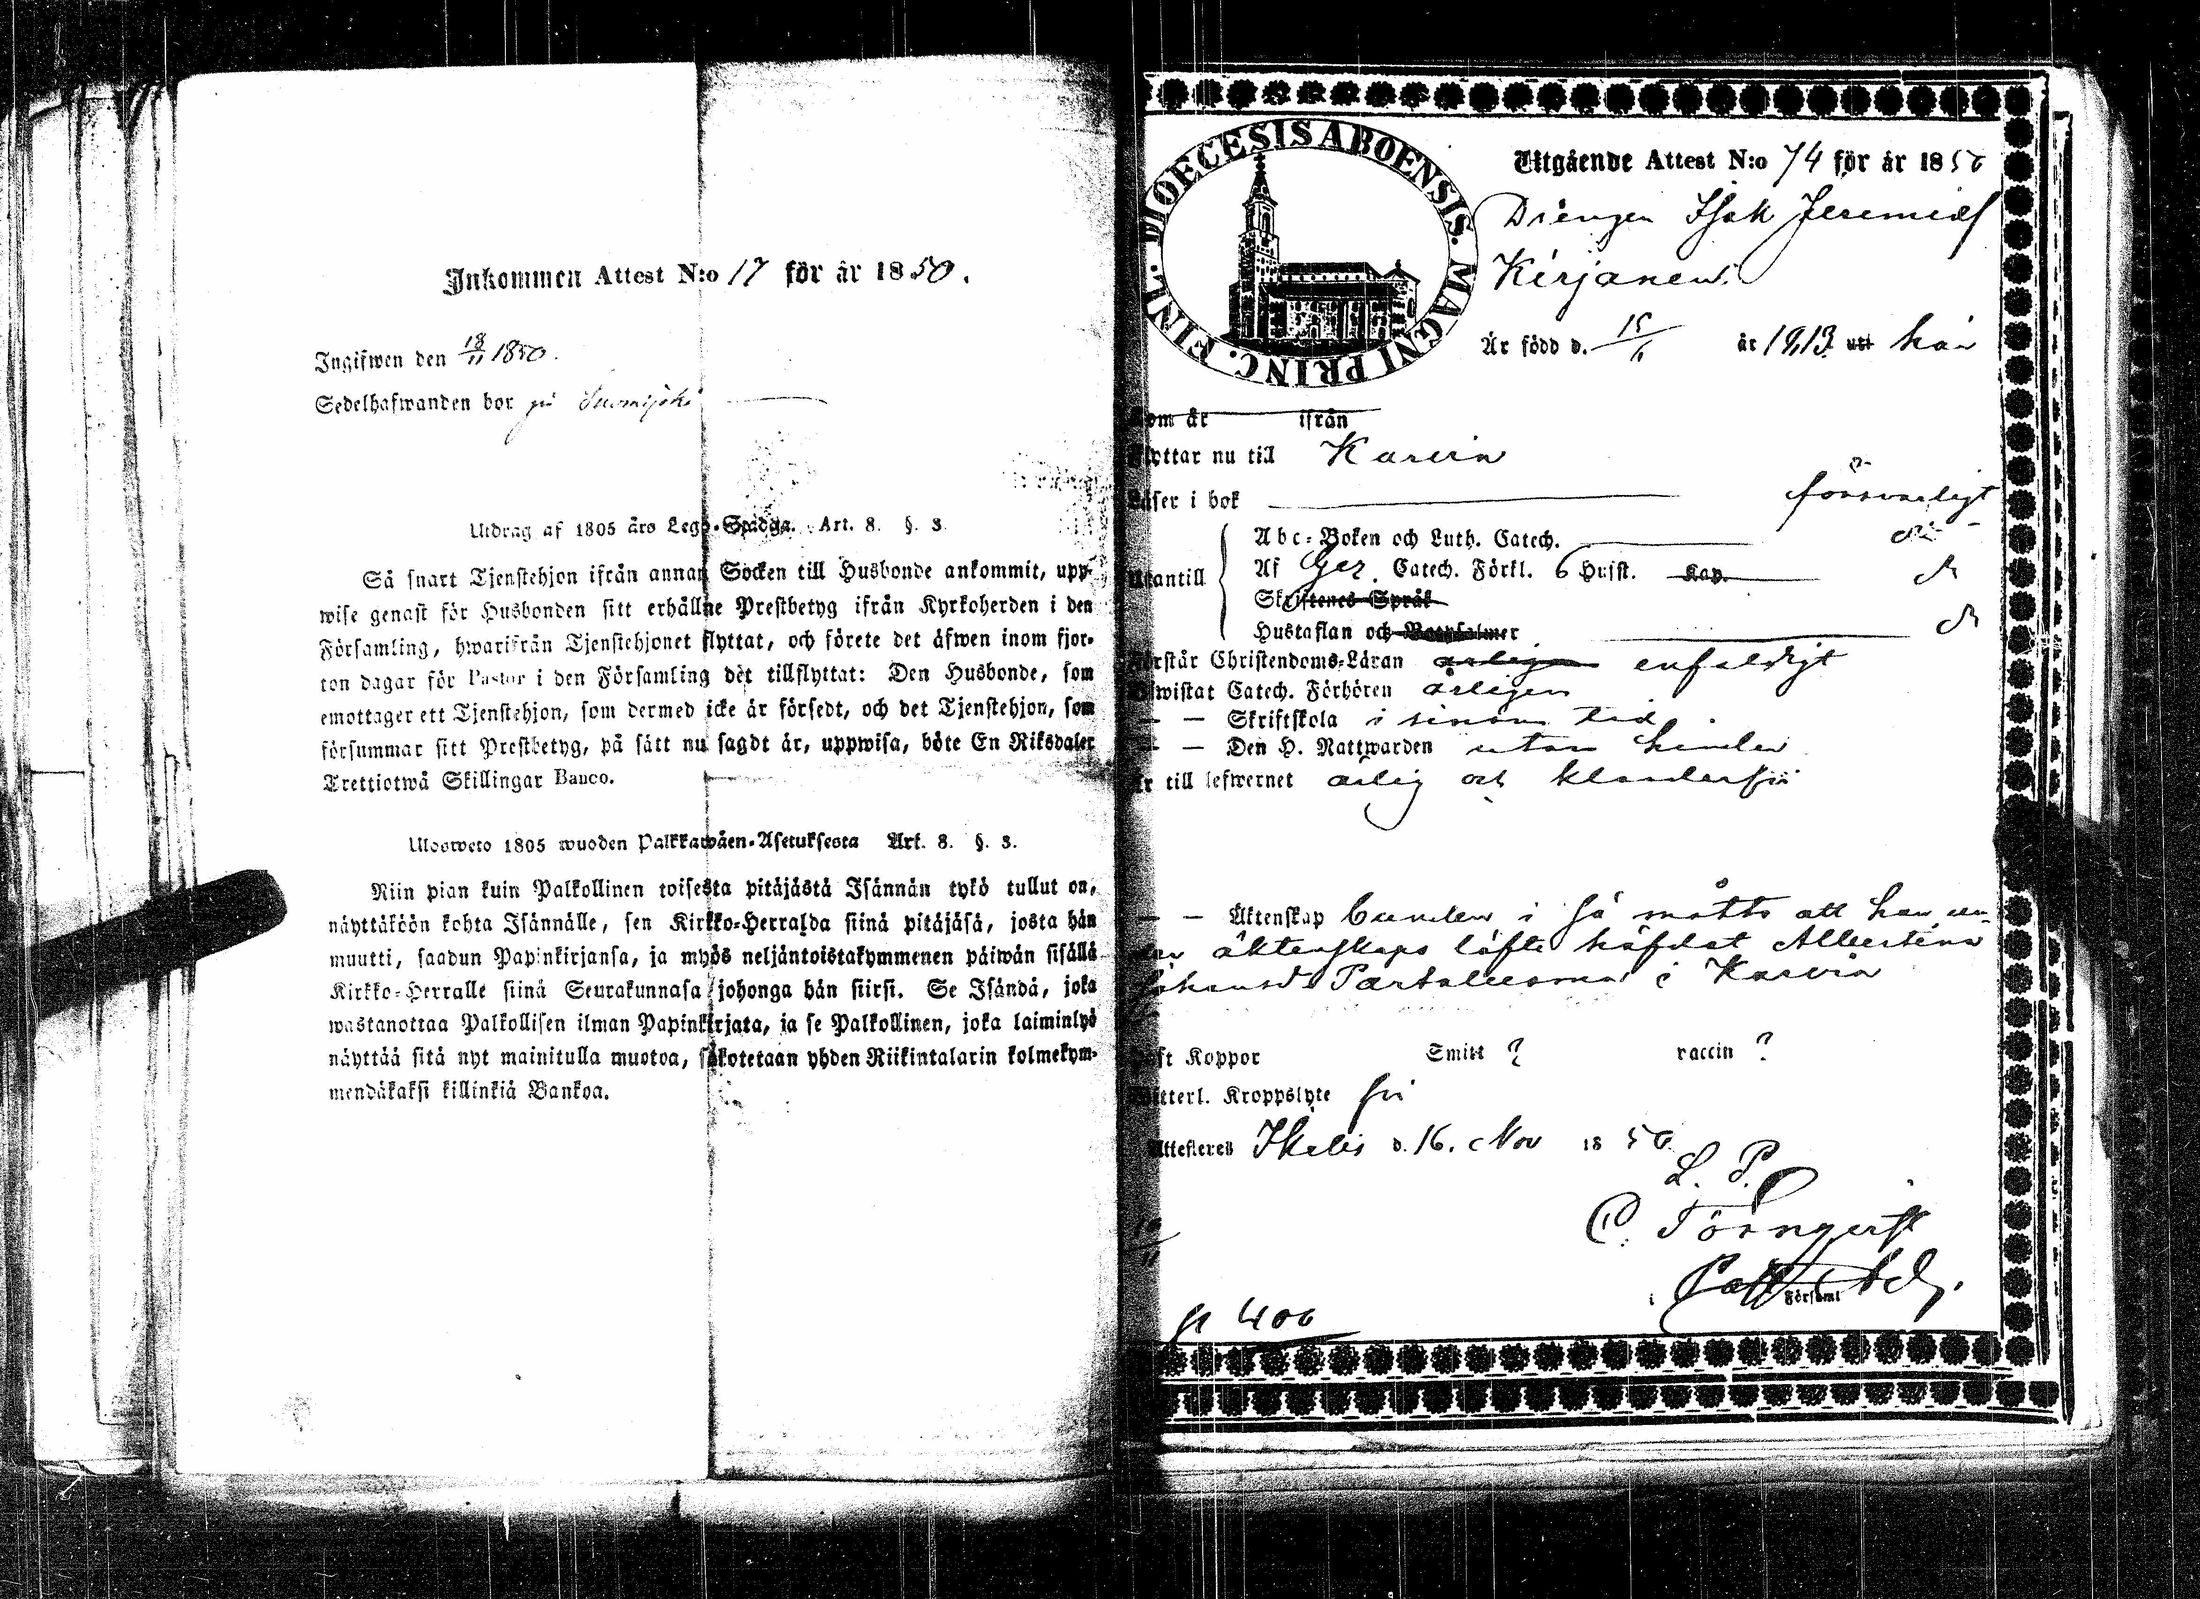 Inkommen Attest N:o 17 för år 1850.
Ingifwen den 18/11 1850.
Sedelhafwanden bor på Suomijoki
Utdrag af 1805 års Lego-Stadga. Art. 8. §. 3.
Så snart Tjenstehjon ifrån annan Socken till Husbonde ankommit, upp-
wise genast för Husbonden sitt erhållne Prestbetyg ifrån Kyrkoherden i den
Församling, hwarifrån Tjenstehjonet flyttat, och förete det äfwen inom fjor-
ton dagar för Pastor i den Församling det tillflyttat: Den Husbonde, som
emottager ett Tjenstehjon, som dermed icke är försedt, och det Tjenstehjon, som
försummar sitt Prestbetyg, på sätt nu sagdt är, uppwisa, böte En Riksdaler
Trettiotwå Skillingar Banco.
Ulosweto 1805 wuoden Palkkawäen-Asetuksesta Art. 8. §. 3.
Niin pian kuin Palkollinen toisesta pitäjästä Isännän tykö tullut on,
näyttäköön kohta Isännälle, sen Kirkko-Herralda siinä pitäjäsä, josta hän
muutti, saadun Papinkirjansa, ja myös neljäntoistakymmenen päiwän sisällä
Kirkko-Herralle siinä Seurakunnasa johonga hän siirsi. Se Isändä, joka
wastanottaa Palkollisen ilman Papinkirjata, ja se Palkollinen, joka laiminlyö
näyttää sitä nyt mainitulla muotoa, sakotetaan yhden Riikintalarin kolmekym-
mendäkaksi killinkiä Bankoa.
DIOECESIS ABOENSIS. MAGNI PRINC. FINL.
Utgående Attest N:o 74 för år 1850
Drengen Isak Jeremias
Kirjanen.
Är född d. 15/6 år 1813 uti här
Kom år ifrån
Flyttar nu till Karvia
Läser i bok försvarligt
Abc-Boken och Luth. Catech. do
Utantill Af Catech. Förkl. 6 Hufst. Kap. do
Skriftenes Språk
Hustaflan och Botpsalmer do
Förstår Christendoms-Läran enfaldigt
Biwistat Catech. Förhören årligen
— — Skriftskola i sinom tid
— — Den H. Nattwarden utan hinder
Är till lefwernet ärlig och klanderfri
— — Äktenskap bunden i så måtto att han un-
der äktenskaps löfte häfdat Albertina
Johansd. i Karvia
Haft Koppor Smitt ? vaccin ?
Witterl. Kroppslyte fri
Attesteres Ikalis d. 16. Nov 1850
L. P.
C. Törnqvist
i Församl
p 400